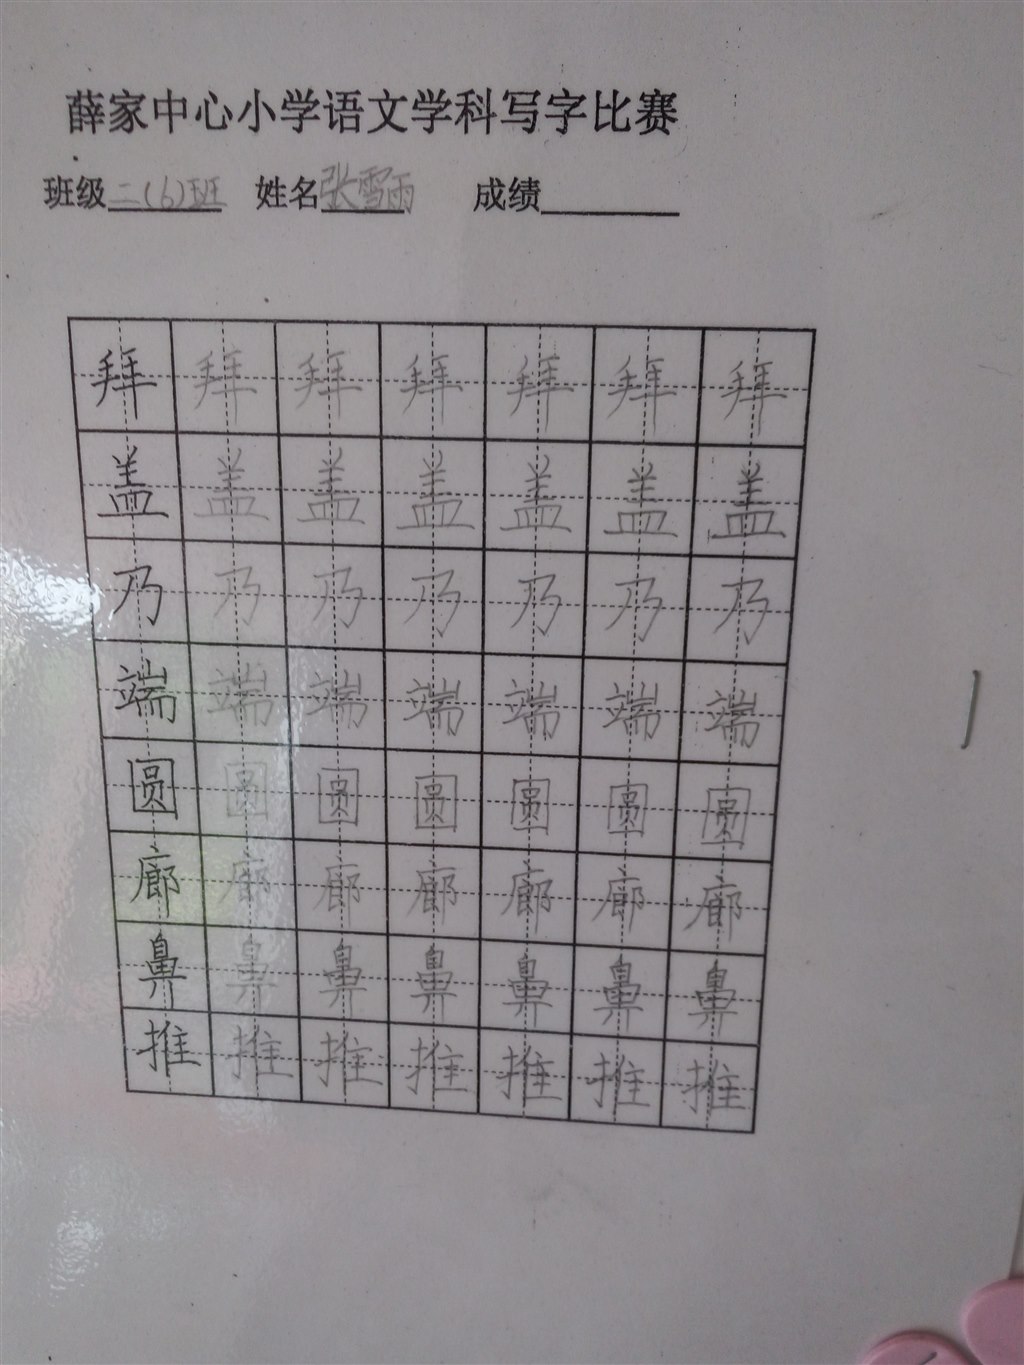 薛家中心小学语文学科写字比赛
班级二(6)班 姓名张雪雨 成绩
拜 拜 拜 拜 拜 拜 拜
盖 盖 盖 盖 盖 盖 盖
乃 乃 乃 乃 乃 乃 乃
端 端 端 端 端 端 端
圆 圆 圆 圆 圆 圆 圆
廊 廊 廊 廊 廊 廊 廊
鼻 鼻 鼻 鼻 鼻 鼻 鼻
推 推 推 推 推 推 推